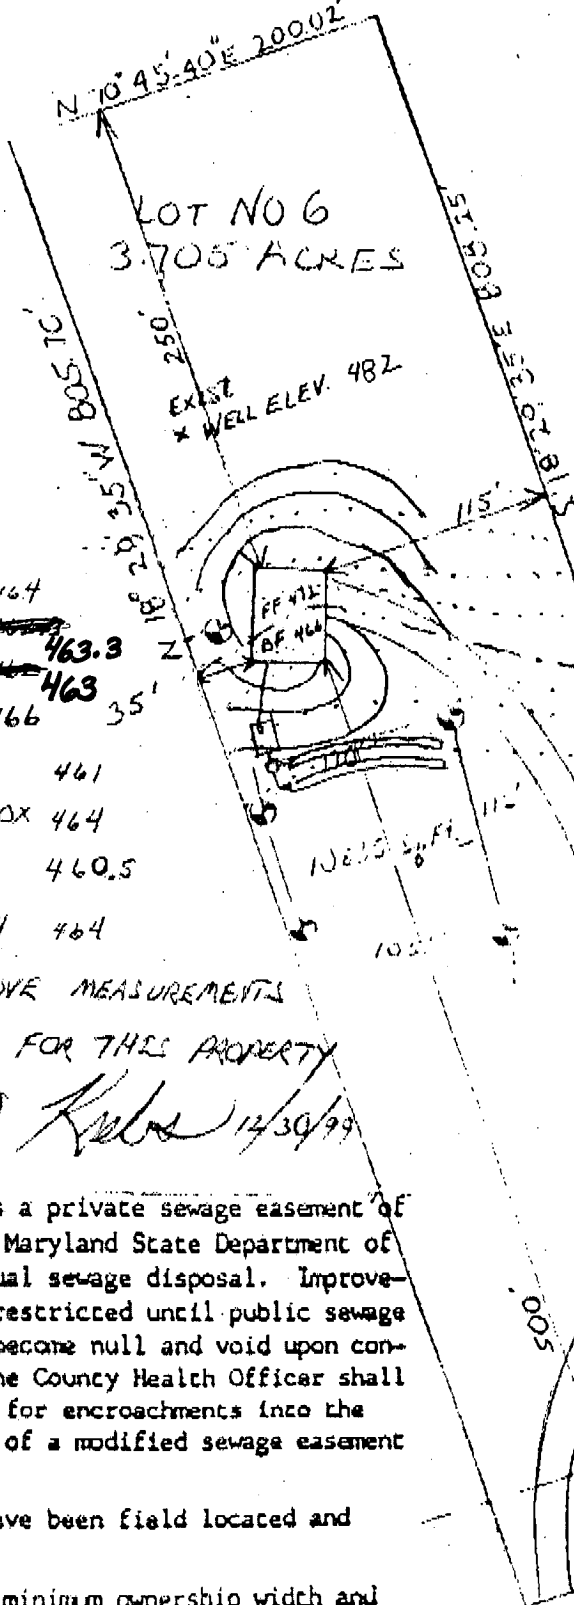 N 10° 45' 40" E 200.02'
LOT NO 6
3.705 ACRES
S 18 29 35 E 808.15
N 18° 29' 35" W 805.70'
250'
EXIST
x WELL ELEV. 482
115'
FF 472
BF 466
35'
463.3
463
466
461
OX 464
460.5
464
110'
112'
Sq Ft
105'
OVE MEASUREMENTS
FOR THIS PROPERTY
Krebs 12/30/99
s a private sewage easement of
Maryland State Department of
ual sewage disposal. Improve-
restricted until public sewage
become null and void upon con-
he County Health Officer shall
for encroachments into the
of a modified sewage easement
500'
ve been field located and
minimum ownership width and